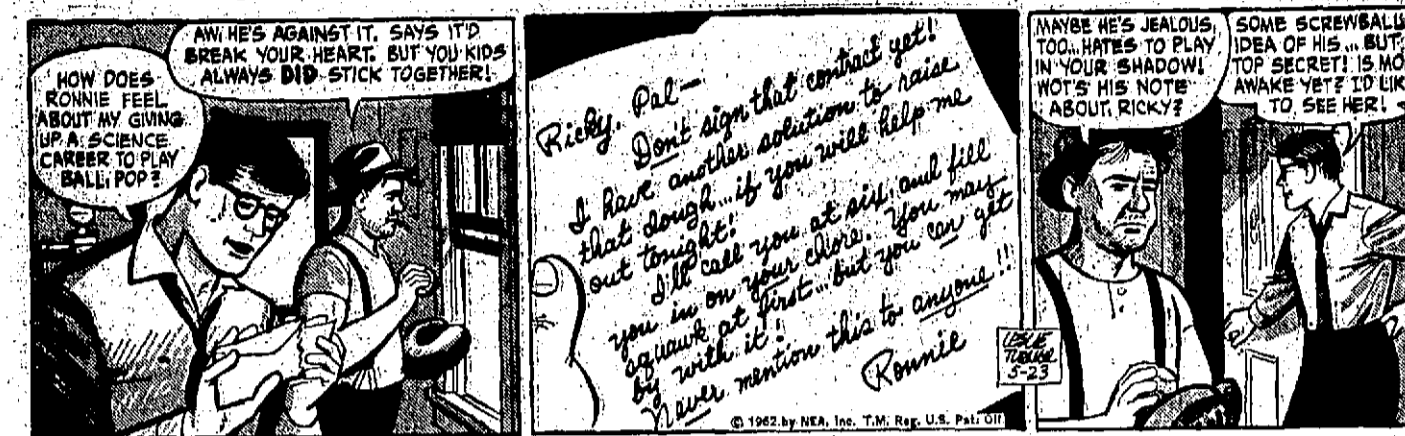 HOW DOES
RONNIE FEEL
ABOUT MY GIVING
UP A SCIENCE
CAREER TO PLAY
BALL, POP?
AW, HE'S AGAINST IT. SAYS IT'D
BREAK YOUR HEART. BUT YOU KIDS
ALWAYS DID STICK TOGETHER!
Ricky, Pal—
Don't sign that contract yet!
I have another solution to raise
that dough... if you will help me
out tonight!
I'll call you at six, and fill
you in on your chore. You may
squawk at first... but you can get
by with it!
Never mention this to anyone!!
Ronnie
© 1962 by NEA, Inc. T.M. Reg. U.S. Pat. Off.
MAYBE HE'S JEALOUS,
TOO... HATES TO PLAY
IN YOUR SHADOW!
WOT'S HIS NOTE
ABOUT, RICKY?
SOME SCREWBALL
IDEA OF HIS... BUT
TOP SECRET! IS MO
AWAKE YET? I'D LIK
TO SEE HER!
LESLIE
TURNER
5-23